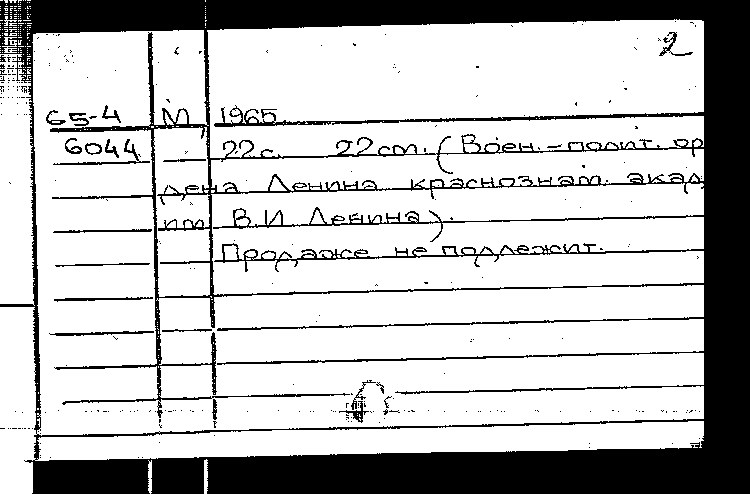 2
65-4 М, 1965.
6044 22с. 22см. (Воен.-полит. ор
дена Ленина краснознам. акад.
им В.И Ленина).
Продаже не подлежит.